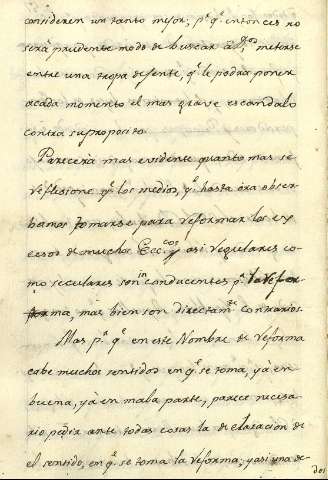 consideren un tanto mejor, p.r q.e entonces no
será prudente modo de buscar à D.os meterse
entre una tropa de gente, q.e le podra poner
acada momento el mas grave escandalo
contra su proposito.
Parecerà mas evidente quanto mas se
reflexione q.e los medios, q.e hasta ora obser-
bamos tomarse para reformar los ex
cesos de muchos Ecc.cos y asi regulares co-
mo seculares son in conducentes p.a la refor
ma, mas bien son directam.te contrarios.
Mas p.r q.e en este Nombre de reforma
cabe muchos sentidos en q.e se toma, yà en
buena, yà en mala parte, parece necesa-
rio pedir ante todas cosas la declaracion de
el sentido, en q.e se toma la reforma; y asi una de
dos